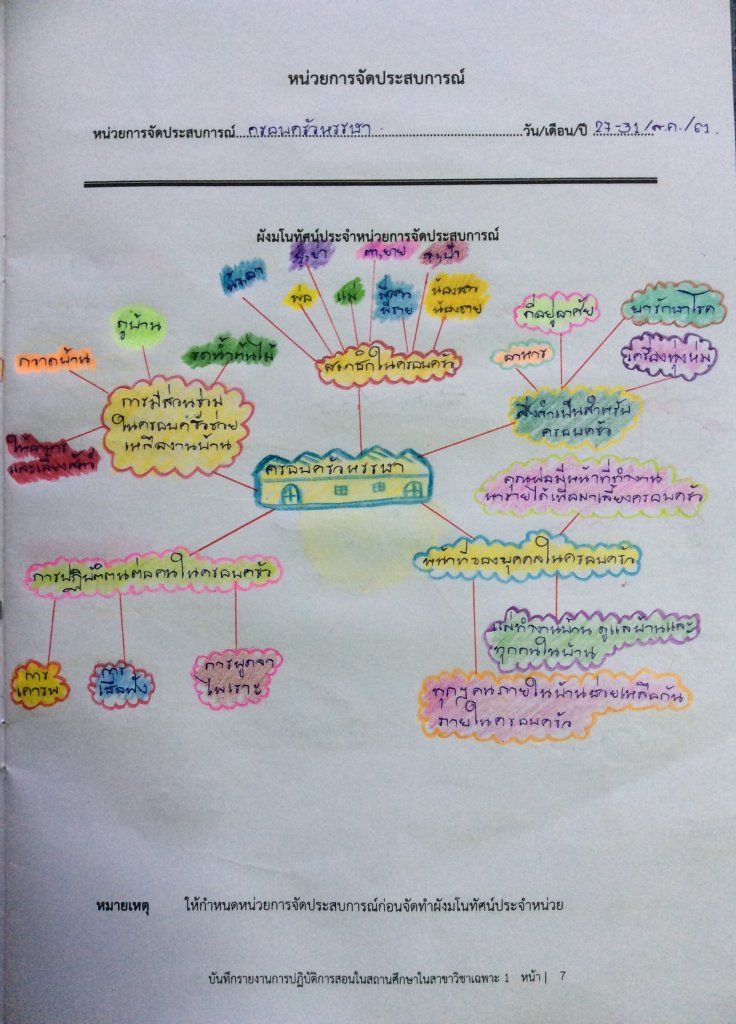 หน่วยการจัดประสบการณ์
หน่วยการจัดประสบการณ์ ครอบครัวหรรษา วัน/เดือน/ปี 27-31/ส.ค./61
ผังมโนทัศน์ประจำหน่วยการจัดประสบการณ์
น้า,อา
ปู่,ย่า
ตา,ยาย
ลุง,ป้า
พ่อ
แม่
พี่สาว
พี่ชาย
น้องสาว
น้องชาย
สมาชิกในครอบครัว
กวาดบ้าน
ถูบ้าน
รดน้ำต้นไม้
ให้อาหาร
และเลี้ยงสัตว์
การมีส่วนร่วม
ในครอบครัวช่วย
เหลืองานบ้าน
อาหาร
ที่อยู่อาศัย
ยารักษาโรค
เครื่องนุ่งห่ม
สิ่งจำเป็นสำหรับ
ครอบครัว
ครอบครัวหรรษา
คุณพ่อมีหน้าที่ทำงาน
หารายได้เพื่อมาเลี้ยงครอบครัว
หน้าที่ของบุคคลในครอบครัว
แม่ทำงานบ้าน ดูแลบ้านและ
ทุกคนในบ้าน
ทุกๆคนภายในบ้านช่วยเหลือกัน
ภายในครอบครัว
การปฏิบัติตนต่อคนในครอบครัว
การ
เคารพ
การ
เชื่อฟัง
การพูดจา
ไพเราะ
หมายเหตุ ให้กำหนดหน่วยการจัดประสบการณ์ก่อนจัดทำผังมโนทัศน์ประจำหน่วย
บันทึกรายงานการปฏิบัติการสอนในสถานศึกษาในสาขาวิชาเฉพาะ 1 หน้า | 7